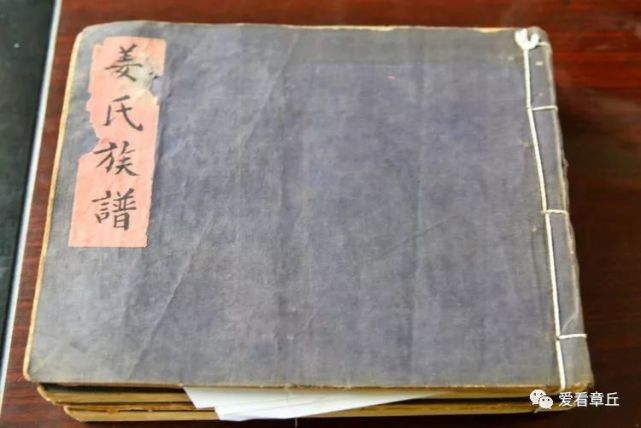 姜氏族譜
爱看章丘